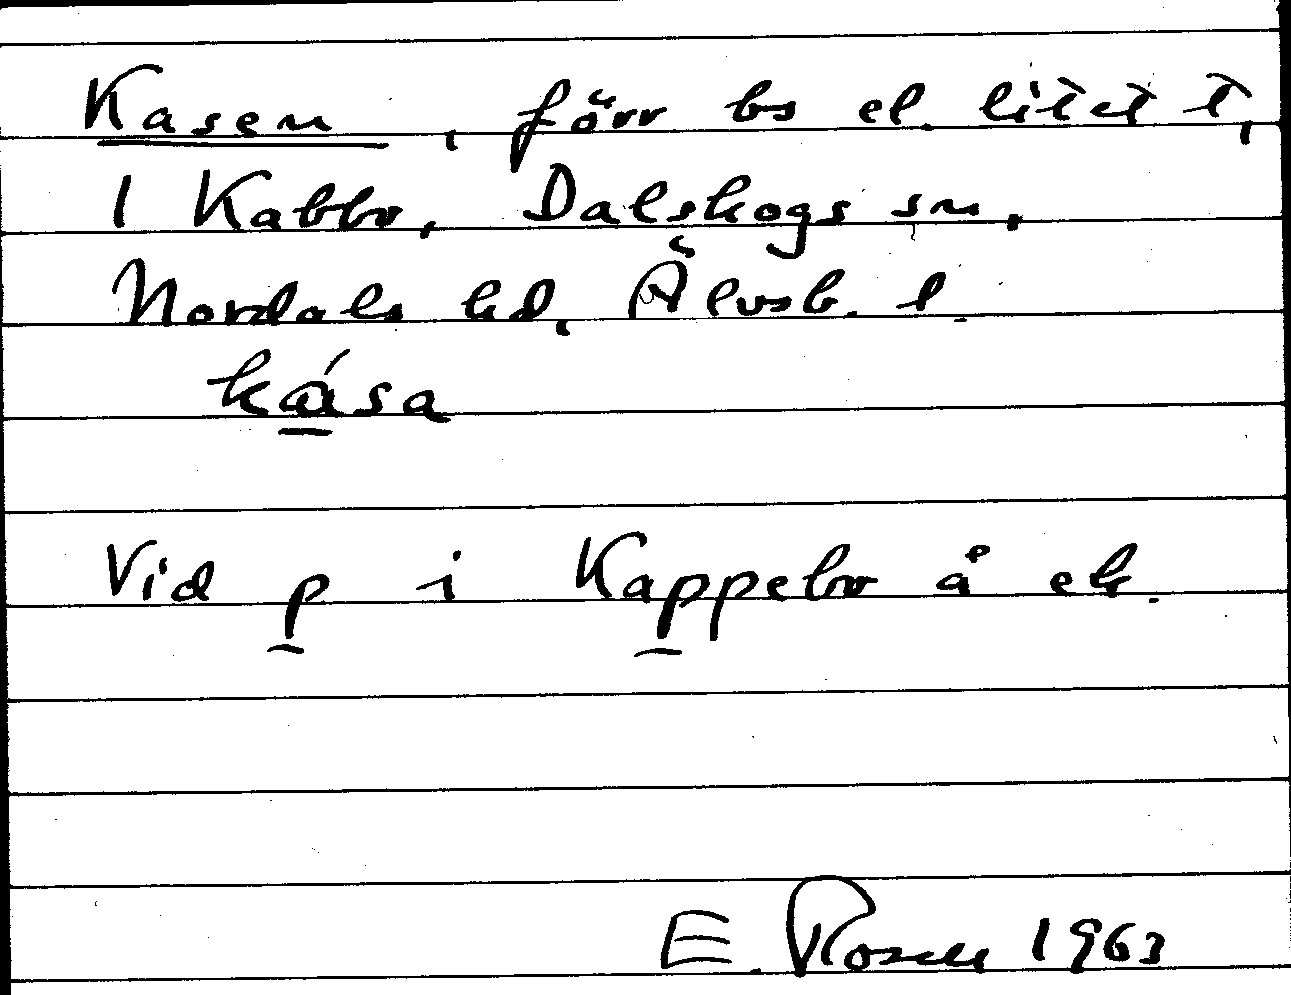 Kasen, förr bs el. litet t,
1 Kabbo, Dalskogs sn,
Nordals hd, Älvsb. l.
kása
Vid p i Kappebo å ek.
E. Rosell 1963